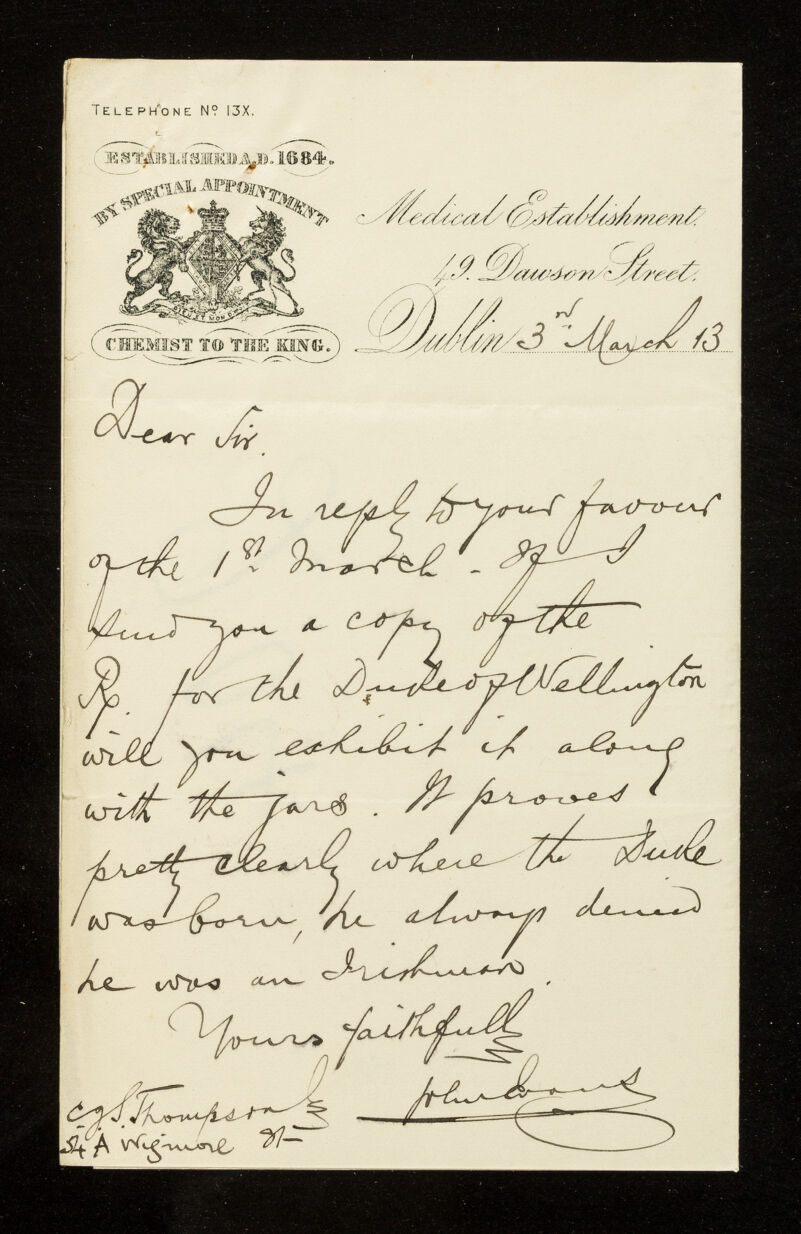 TELEPHONE Nº 13X.
ESTABLISHED A.D. 1684.
BY SPECIAL APPOINTMENT
DIEU ET MON DROIT
CHEMIST TO THE KING.
Medical Establishment.
49. Dawson Street.
Dublin 3rd March 13
Dear Sir.
In reply to your favour
of the 1st March - If I
send you a copy of the
Rx. for the Duke of Wellington
will you exhibit it along
with the jars. It proves
pretty clearly where the Duke
was born, he always denied
he was an Irishman.
Yours faithfully
John Evans
C.J.S. Thompson
54 A Wigmore St